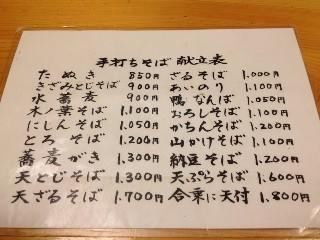 手打ちそば 献立表
たぬき 850円
きざみとじそば 900円
水蕎麦 900円
木ノ葉そば 1.100円
にしんそば 1.050円
とろそば 1.200円
蕎麦がき 1.300円
天とじそば 1.300円
天ざるそば 1.700円
ざるそば 1.000円
あいのり 1.100円
鴨なんば 1.050円
おろしそば 1.100円
かちんそば 1.200円
山かけそば 1.100円
納豆そば 1.200円
天ぷらそば 1.600円
合乗に天付 1.800円